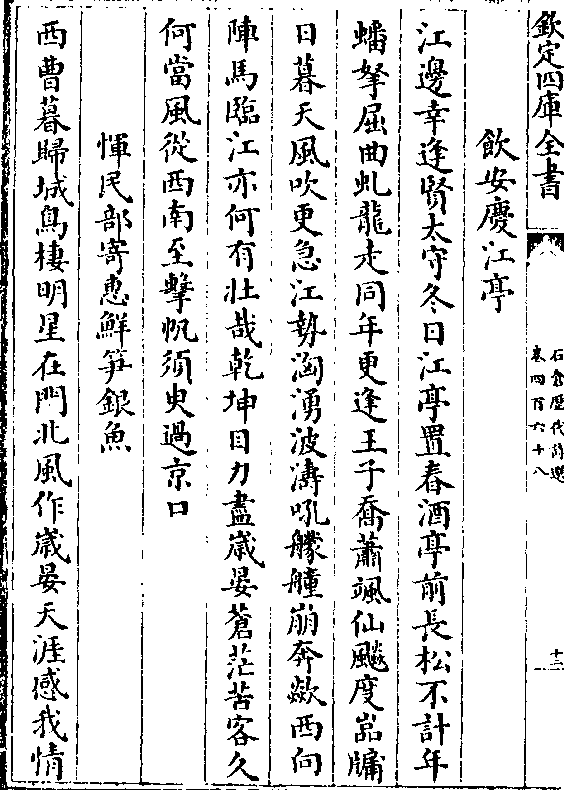 欽定四庫全書
石倉歷代詩選
卷四百六十八
十二
飲安慶江亭
江邊幸逢賢太守冬日江亭置春酒亭前長松不計年
蟠拏屈曲虬龍走同年更逢王子喬蕭颯仙飈度嵓牖
日暮天風吹更急江勢洶湧波濤吼艨艟崩奔歘西向
陣馬臨江亦何有壯哉乾坤目力盡歲晏蒼茫苦客久
何當風從西南至擊帆須臾過京口
惲民部寄惠鮮笋銀魚
西曹暮歸城烏棲明星在門北風作歲晏天涯感我情